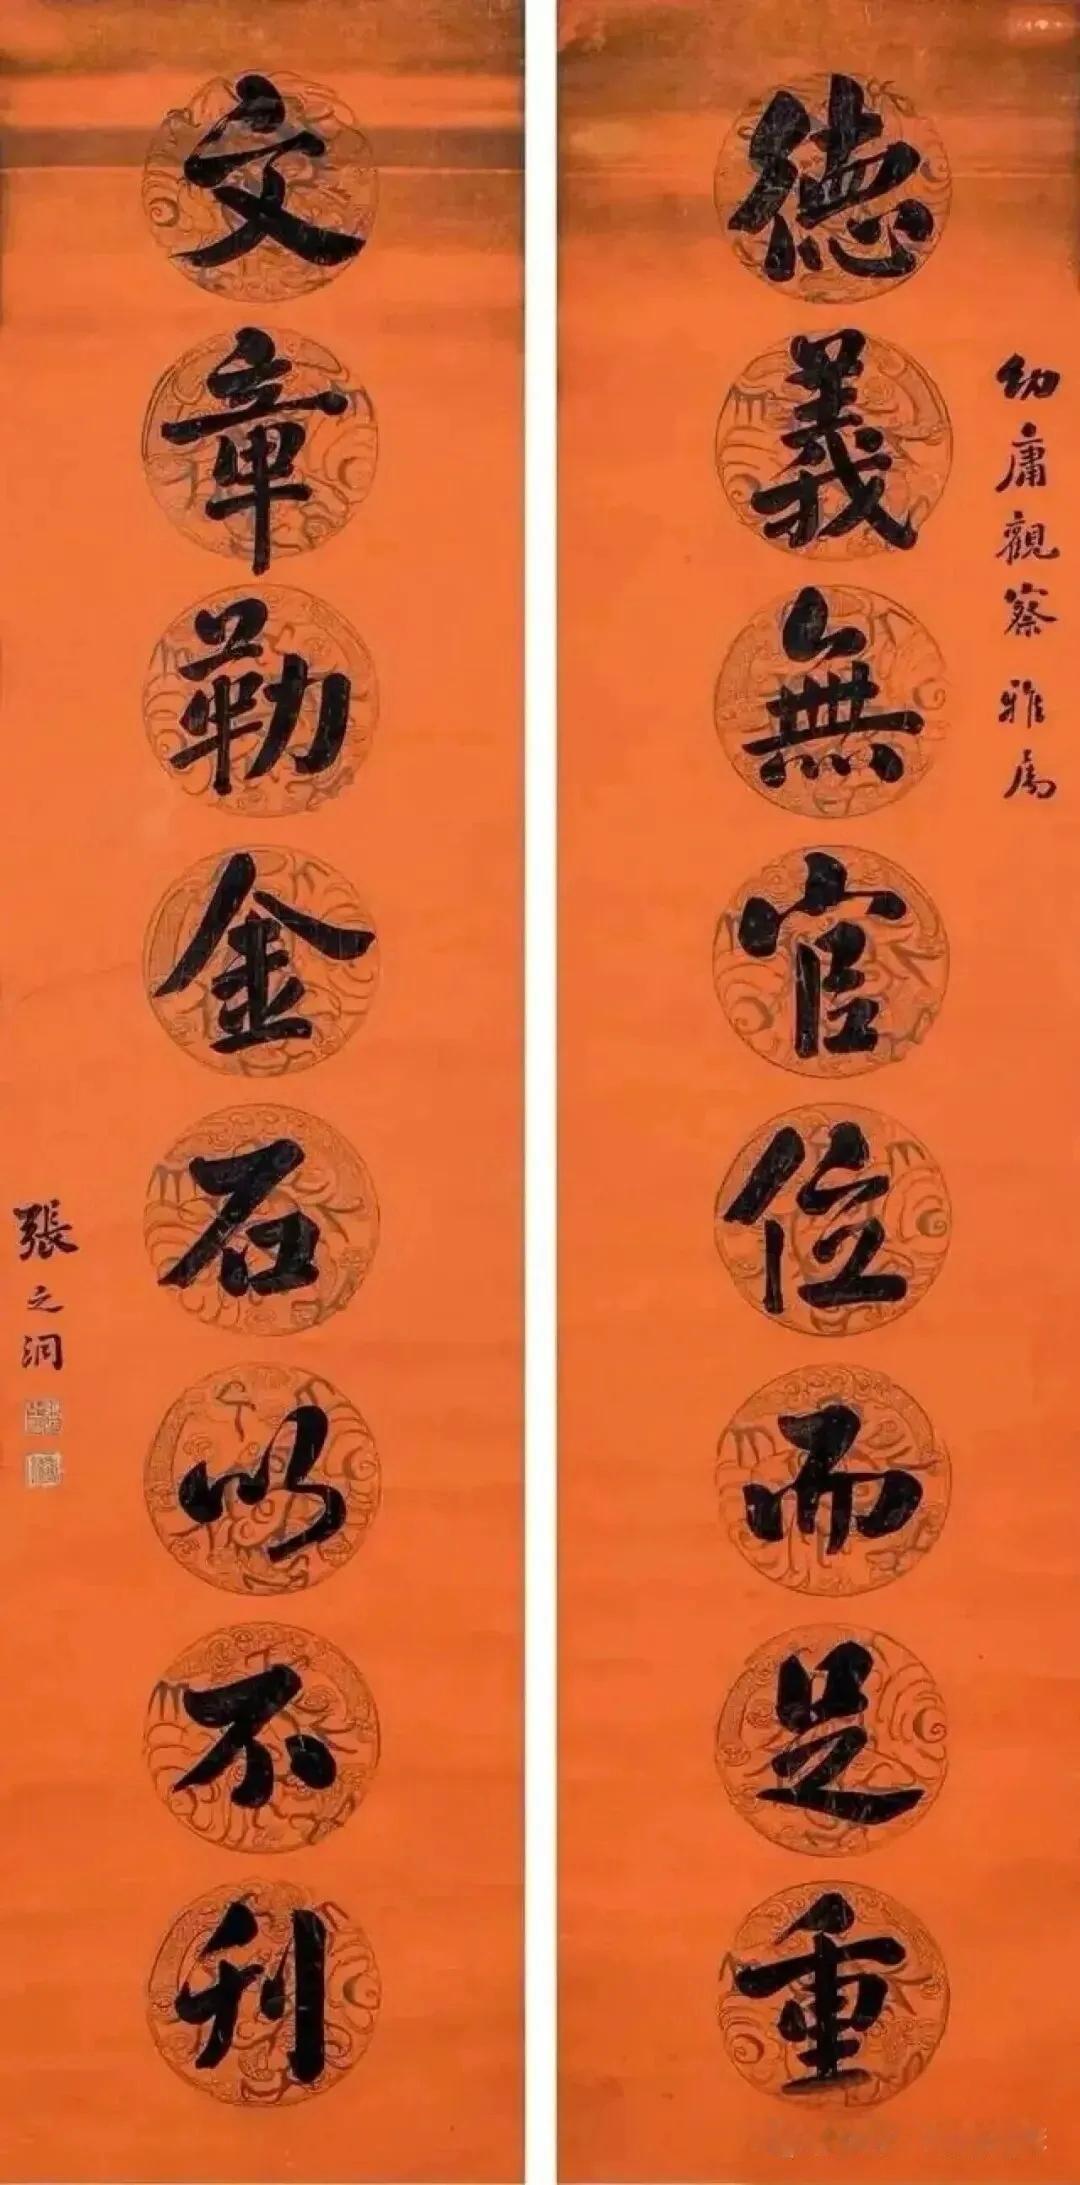 幼庸觀察雅属
德義無官位而足重
文章勒金石以不刊
張之洞